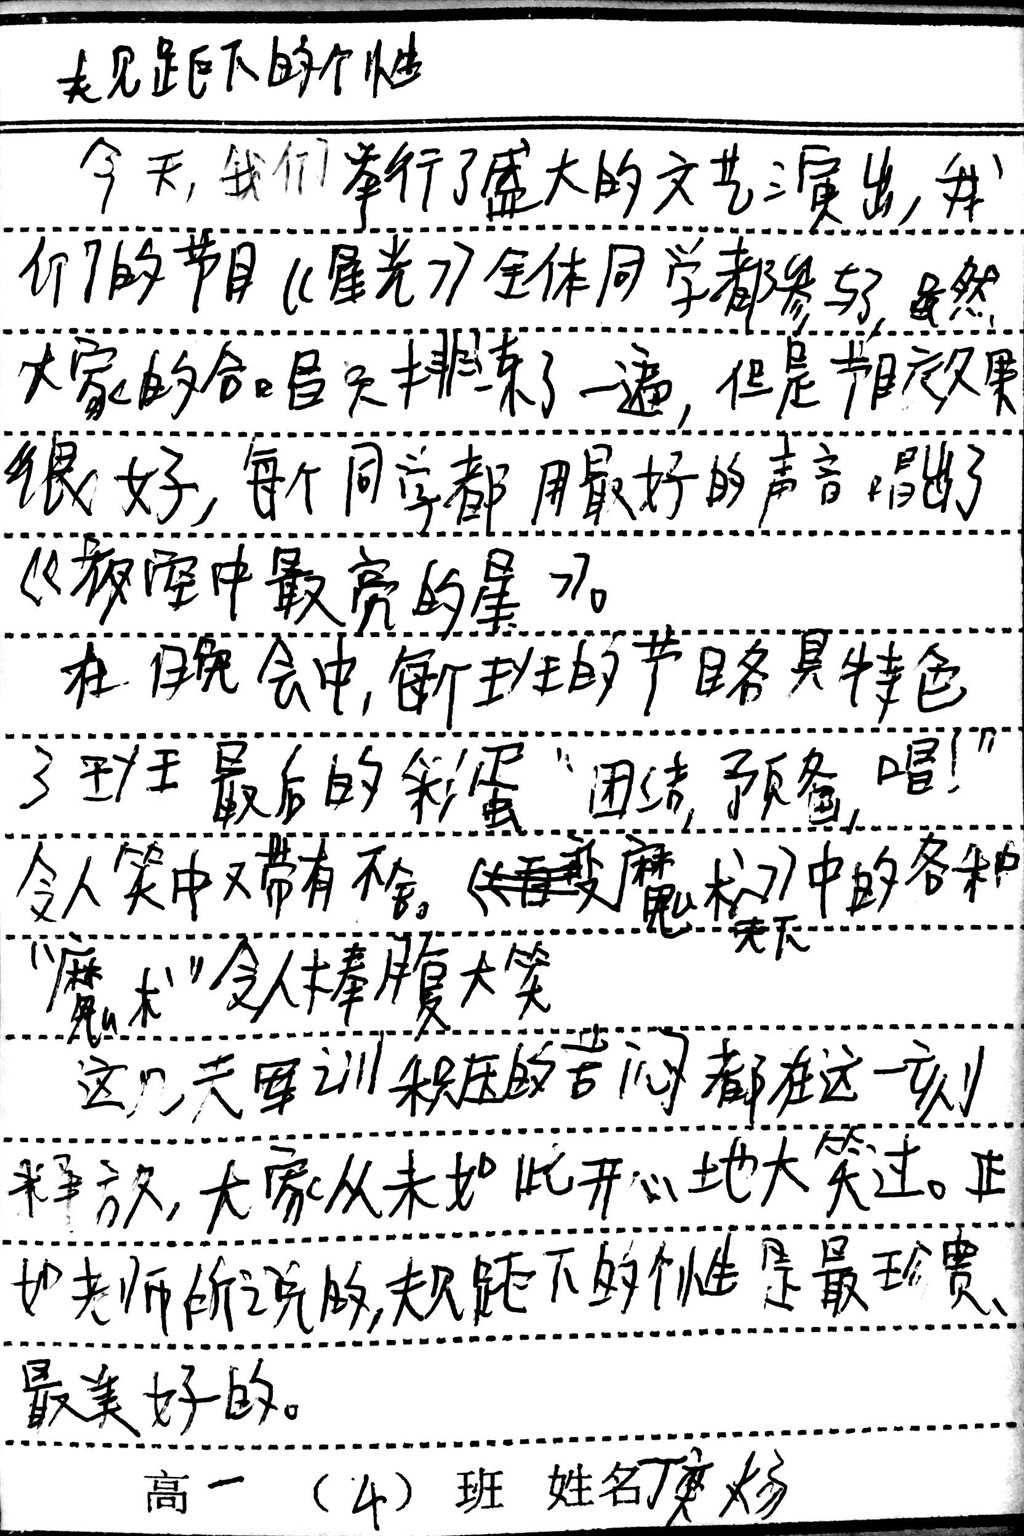 规距下的个性
今天,我们举行了盛大的文艺演出,我
们的节目《星光》全体同学都参与了,虽然
大家的合唱只排练了一遍,但是节目效果
很好,每个同学都用最好的声音唱出了
《夜空中最亮的星》。
在晚会中,每个班的节目各具特色
3班最后的彩蛋“团结,预备,唱!”
令人笑中又带有不舍。《变魔术》中的各种
天下
“魔术”令人捧腹大笑
这几天军训积压的苦闷都在这一刻
释放,大家从未如此开心地大笑过。正
如老师所说的,规距下的个性是最珍贵、
最美好的。
高一(4)班 姓名